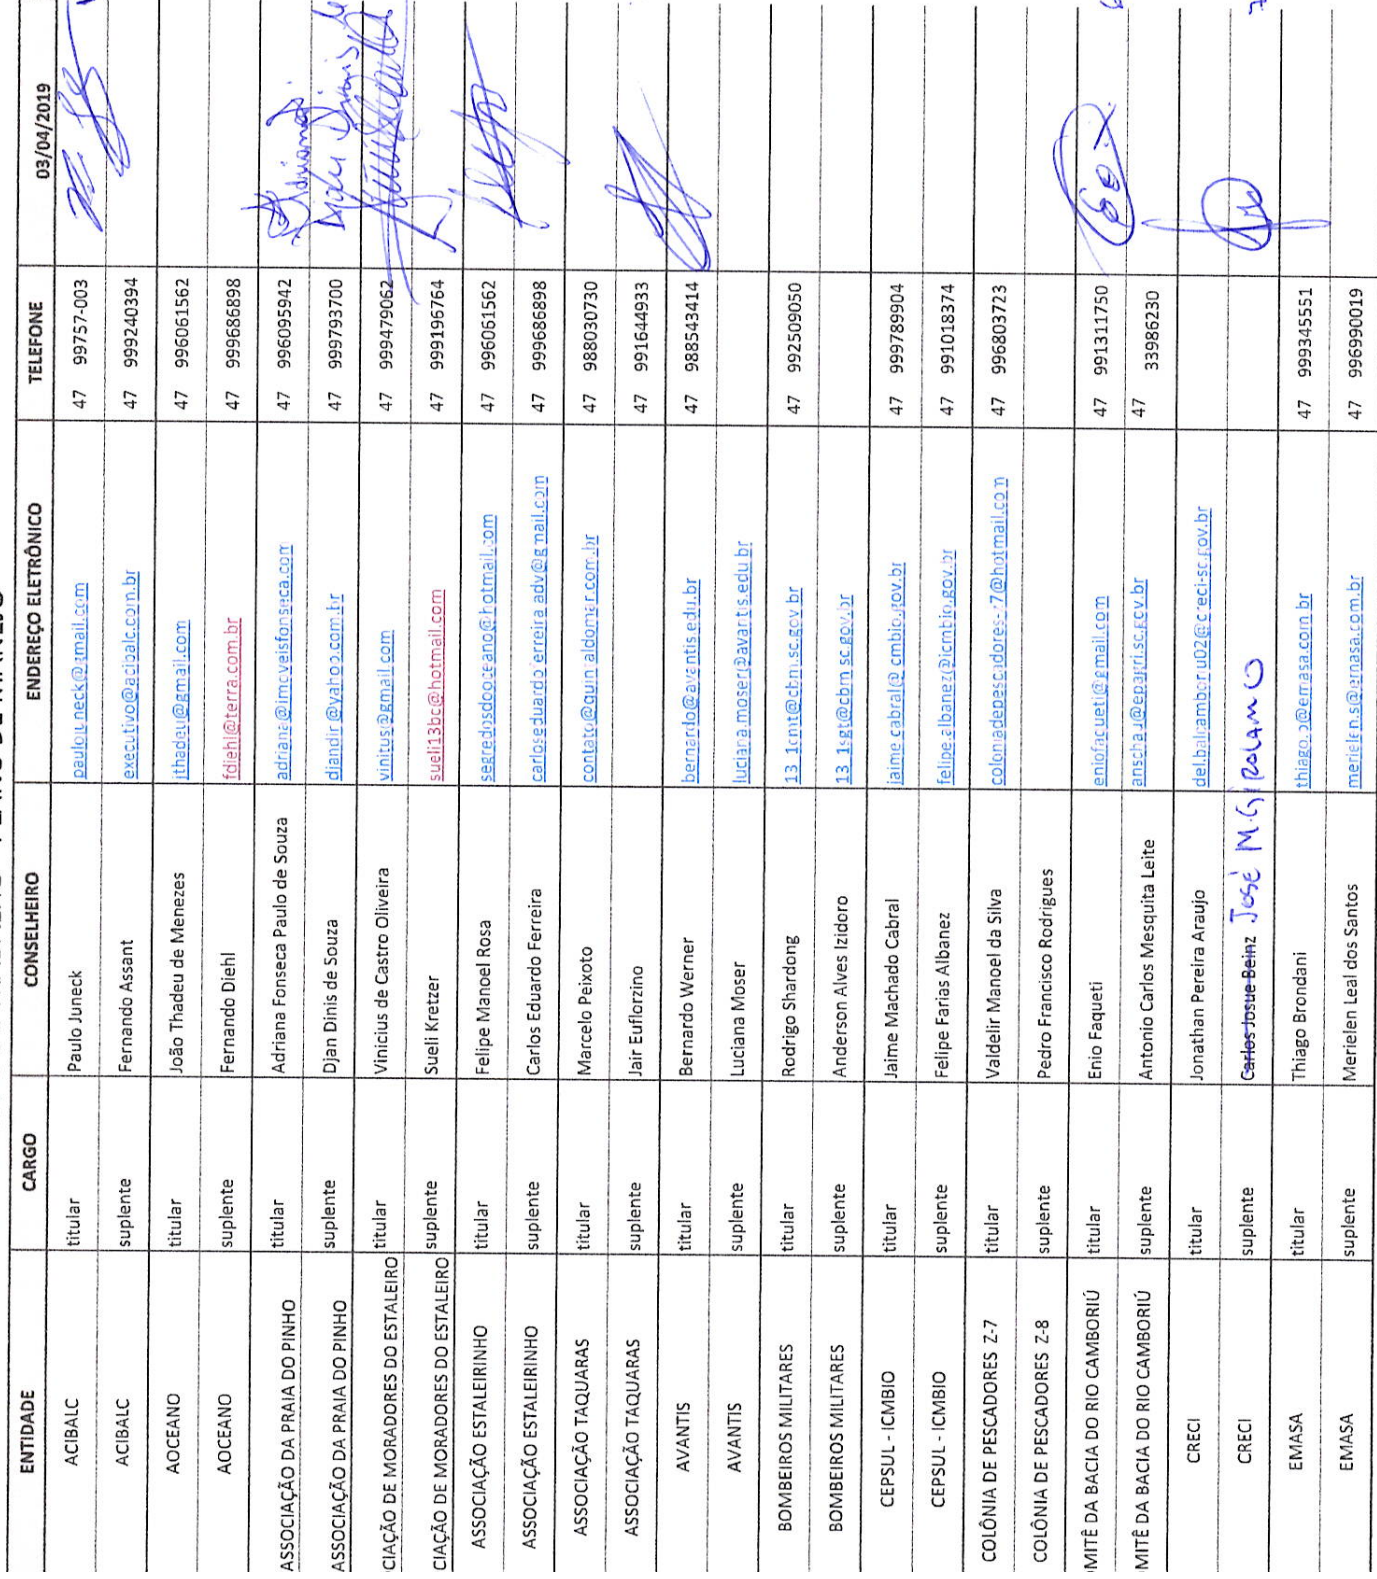 ENTIDADE CARGO CONSELHEIRO ENDEREÇO ELETRÔNICO TELEFONE 03/04/2019
ACIBALC titular Paulo Juneck 47 99757-003
ACIBALC suplente Fernando Assant executivo@acibalc.com.br 47 999240394
AOCEANO titular João Thadeu de Menezes jthadeu@gmail.com 47 996061562
AOCEANO suplente Fernando Diehl fdiehl@terra.com.br 47 999686898
ASSOCIAÇÃO DA PRAIA DO PINHO titular Adriana Fonseca Paulo de Souza 47 996095942
ASSOCIAÇÃO DA PRAIA DO PINHO suplente Djan Dinis de Souza diandir@yahoo.com.br 47 999793700
CIAÇÃO DE MORADORES DO ESTALEIRO titular Vinicius de Castro Oliveira vinitus@gmail.com 47 999479062
CIAÇÃO DE MORADORES DO ESTALEIRO suplente Sueli Kretzer sueli13bc@hotmail.com 47 999196764
ASSOCIAÇÃO ESTALEIRINHO titular Felipe Manoel Rosa segredosdooceano@hotmail.com 47 996061562
ASSOCIAÇÃO ESTALEIRINHO suplente Carlos Eduardo Ferreira 47 999686898
ASSOCIAÇÃO TAQUARAS titular Marcelo Peixoto 47 988030730
ASSOCIAÇÃO TAQUARAS suplente Jair Euflorzino 47 991644933
AVANTIS titular Bernardo Werner bernardo@avantis.edu.br 47 988543414
AVANTIS suplente Luciana Moser luciana.moser@avantis.edu.br
BOMBEIROS MILITARES titular Rodrigo Shardong 13_1cmt@cbm.sc.gov.br 47 992509050
BOMBEIROS MILITARES suplente Anderson Alves Izidoro 13_1sgt@cbm.sc.gov.br
CEPSUL - ICMBIO titular Jaime Machado Cabral 47 999789904
CEPSUL - ICMBIO suplente Felipe Farias Albanez felipe.albanez@icmbio.gov.br 47 991018374
COLÔNIA DE PESCADORES Z-7 titular Valdelir Manoel da Silva 47 996803723
COLÔNIA DE PESCADORES Z-8 suplente Pedro Francisco Rodrigues
MITÊ DA BACIA DO RIO CAMBORIÚ titular Enio Faqueti eniofaqueti@gmail.com 47 991311750
MITÊ DA BACIA DO RIO CAMBORIÚ suplente Antonio Carlos Mesquita Leite anschau@epagri.sc.gov.br 47 33986230
CRECI titular Jonathan Pereira Araujo
CRECI suplente Carlos Josue Beinz JOSÉ M. GIROLAMO
EMASA titular Thiago Brondani 47 999345551
EMASA suplente Merielen Leal dos Santos merielen.s@emasa.com.br 47 996990019